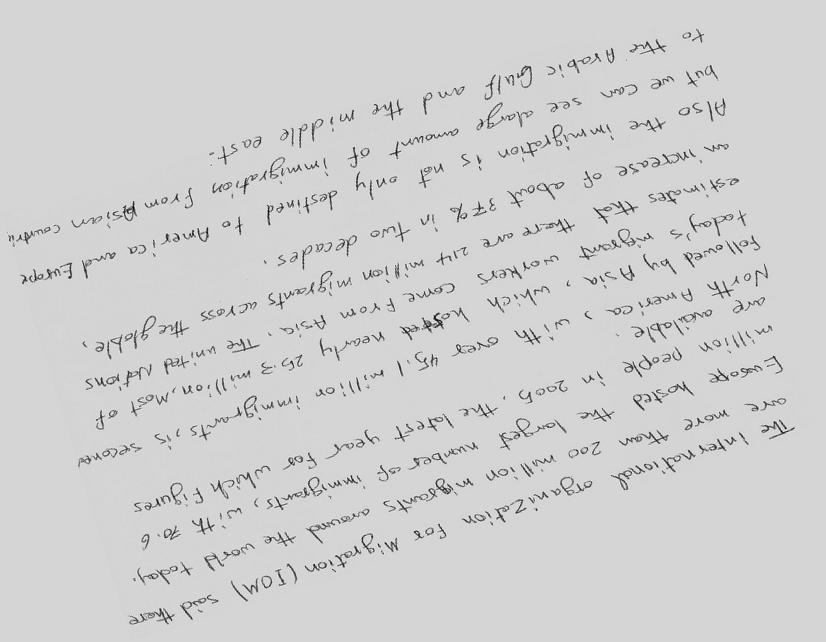 The international organization for Migration (IOM) said there
are more than 200 million migrants around the world today.
Europe hosted the largest number of immigrants, with 70.6
million people in 2005, the latest year for which figures
are available.
North America, with over 45.1 million immigrants, is second
followed by Asia, which hosted nearly 25.3 million. Most of
today's migrant workers come from Asia. The united Nations
estimates that there are 214 million migrants across the globle,
an increase of about 37% in two decades.
Also the immigration is not only destined to America and Europe
but we can see alarge amount of immigration from Asian countris
to the Arabic Gulf and the middle east.